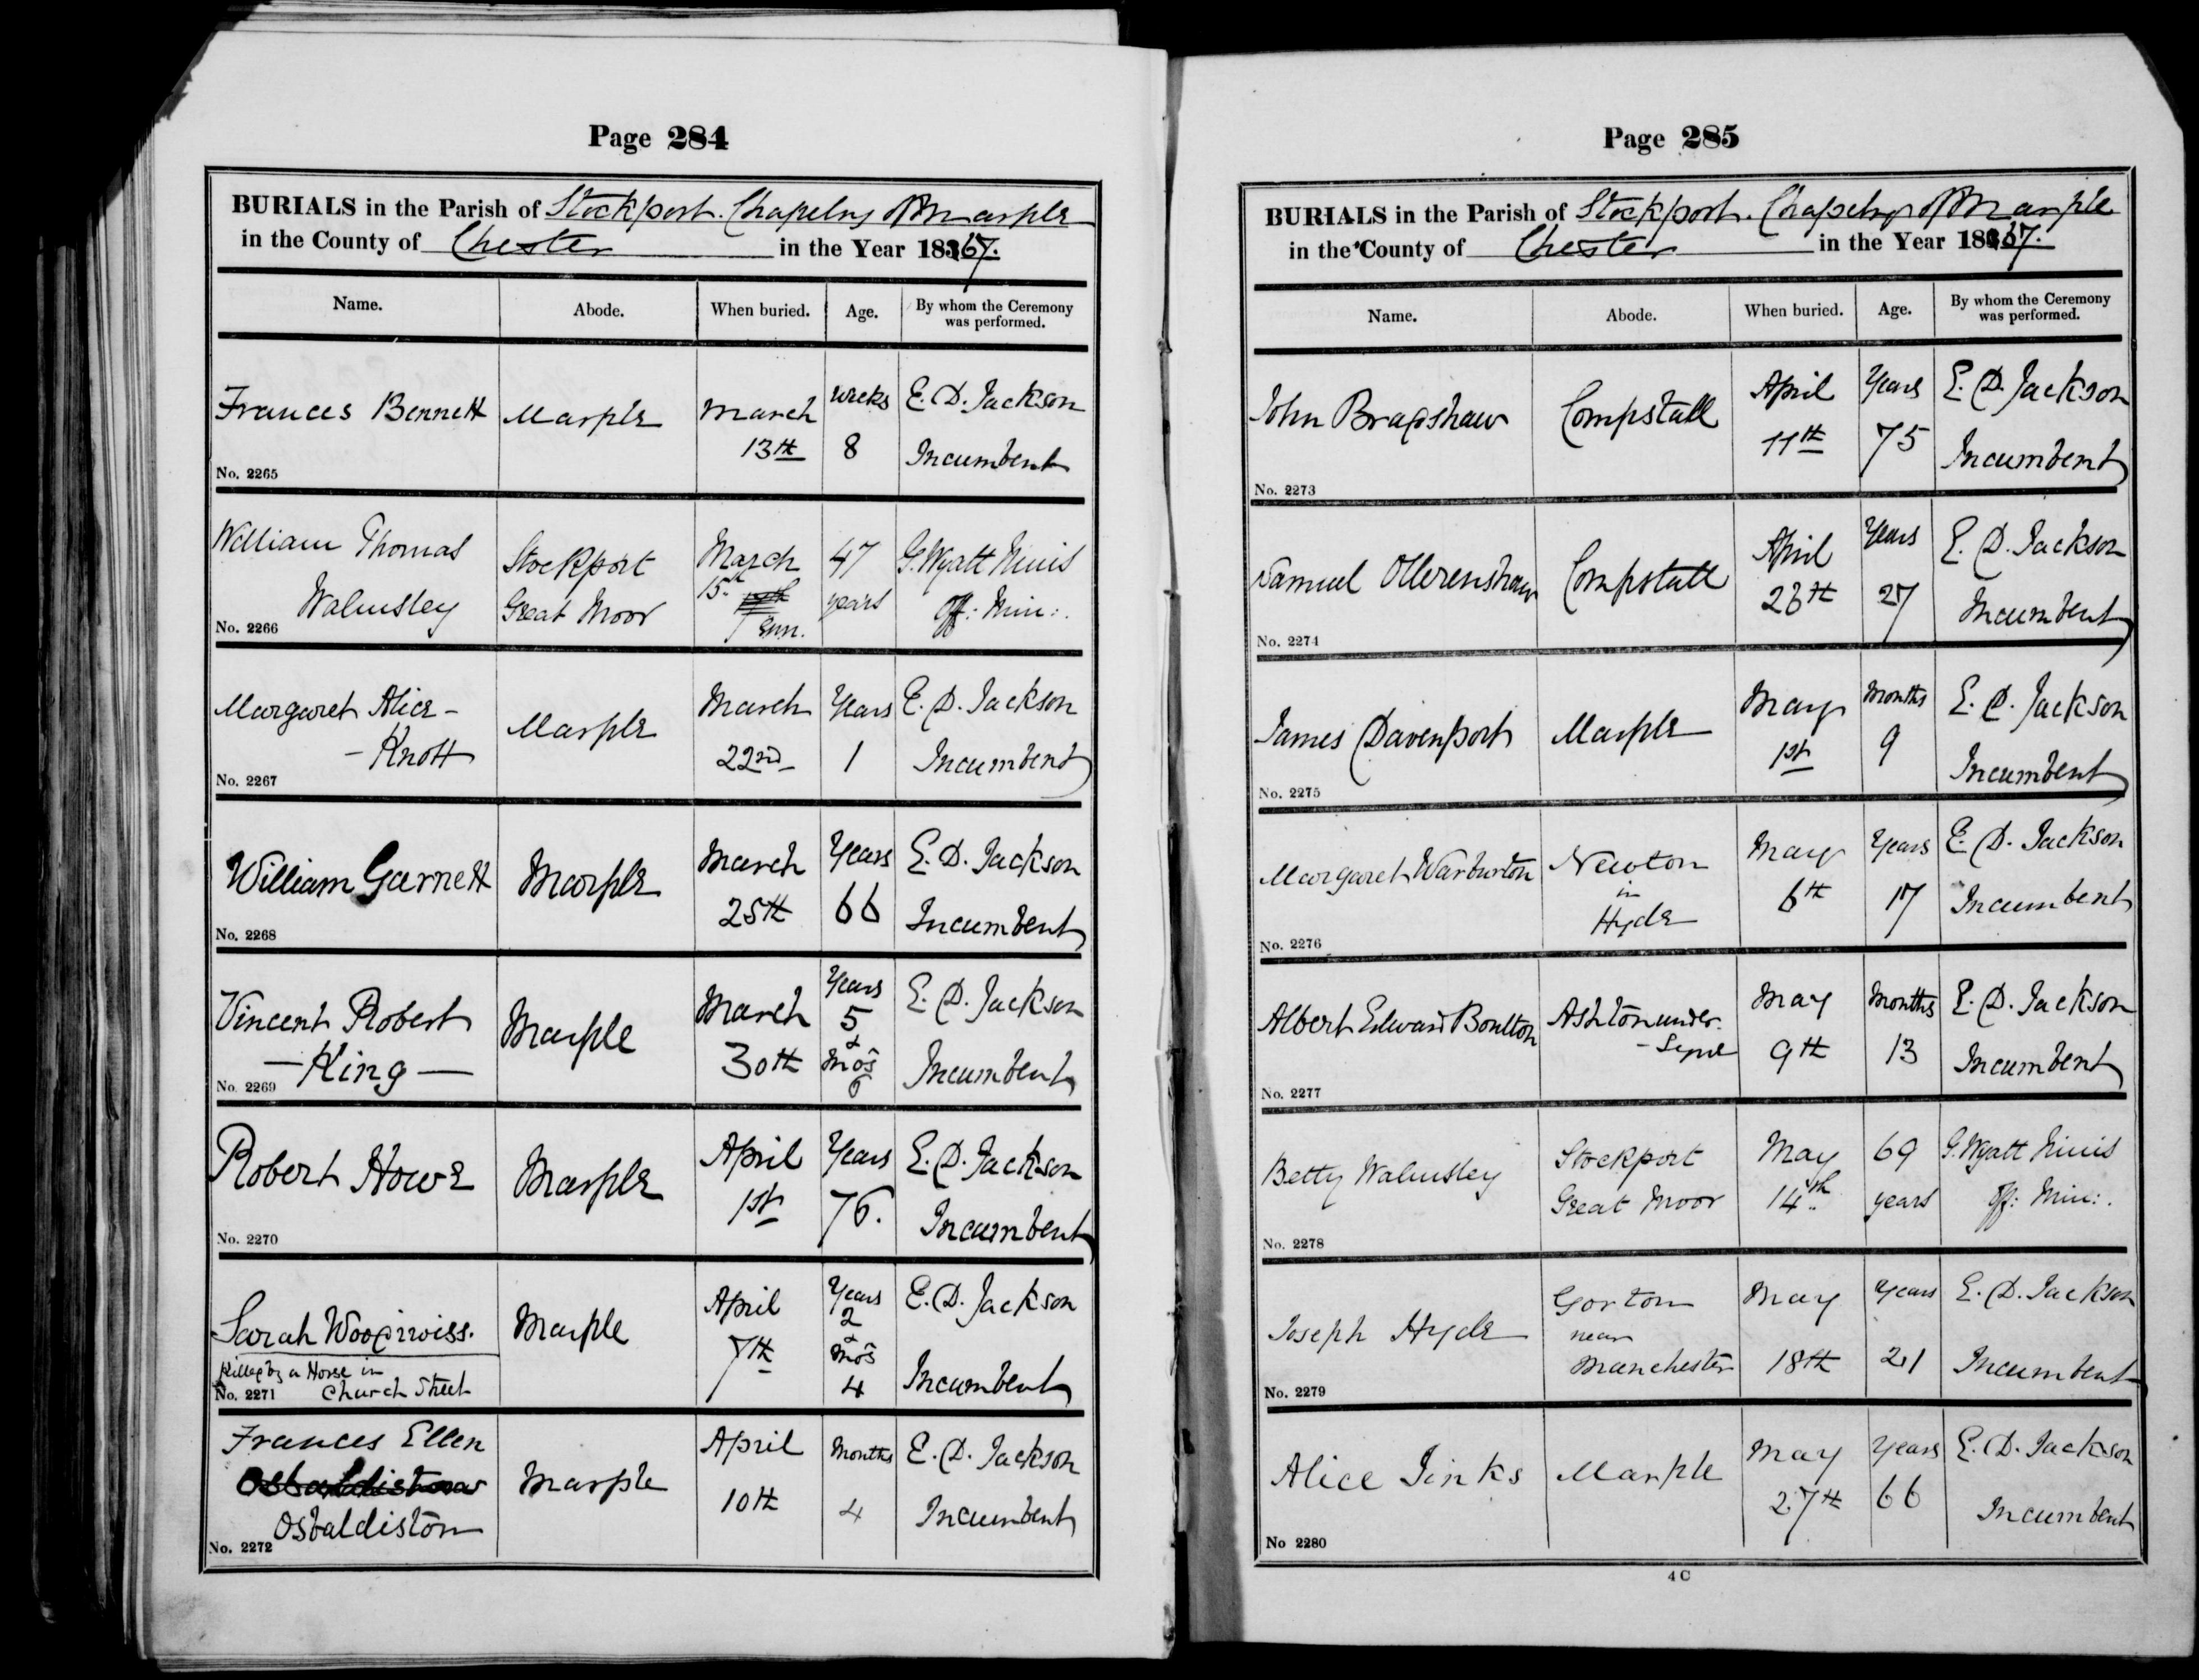 Page 284
BURIALS in the Parish of Stockport. Chapelry of Marple
in the County of Chester in the Year 1867.
Name. Abode. When buried. Age. By whom the Ceremony
was performed.
Frances Bennett Marple March weeks E. D. Jackson
13th 8 Incumbent
No. 2265
William Thomas Stockport March 47 G. Wyatt
Walmsley Great Moor 15th years Off: Min:.
No. 2266
Margaret Alice - Marple March Years E. D. Jackson
- Knott 22nd 1 Incumbent
No. 2267
William Garnett Marple March Years E. D. Jackson
25th 66 Incumbent
No. 2268
Vincent Robert Marple March Years 5 E. D. Jackson
— King — 30th & mos 6 Incumbent
No. 2269
Robert Howe Marple April Years E. D. Jackson
1st 76. Incumbent
No. 2270
Sarah Woodiwiss. Marple April Years 2 E. D. Jackson
Killed by a Horse in 7th & mos 4 Incumbent
No. 2271 Church Street
Frances Ellen Marple April Months E. D. Jackson
Osbaldiston 10th 4 Incumbent
No. 2272
Page 285
BURIALS in the Parish of Stockport. Chapelry of Marple
in the County of Chester in the Year 1867.
Name. Abode. When buried. Age. By whom the Ceremony
was performed.
John Bradshaw Compstall April Years E. D. Jackson
11th 75 Incumbent
No. 2273
Samuel Ollerenshaw Compstall April Years E. D. Jackson
26th 27 Incumbent
No. 2274
James Davenport Marple May Months E. D. Jackson
1st 9 Incumbent
No. 2275
Margaret Warburton Newton May Years E. D. Jackson
in 6th 17 Incumbent
Hyde
No. 2276
Albert Edward Boulton Ashton under- May Months E. D. Jackson
- Lyne 9th 13 Incumbent
No. 2277
Betty Walmsley Stockport May 69 G. Wyatt
Great Moor 14th years Off: Min:.
No. 2278
Joseph Hyde Gorton May Years E. D. Jackson
near
Manchester 18th 21 Incumbent
No. 2279
Alice Jinks Marple May Years E. D. Jackson
27th 66 Incumbent
No 2280
4 C